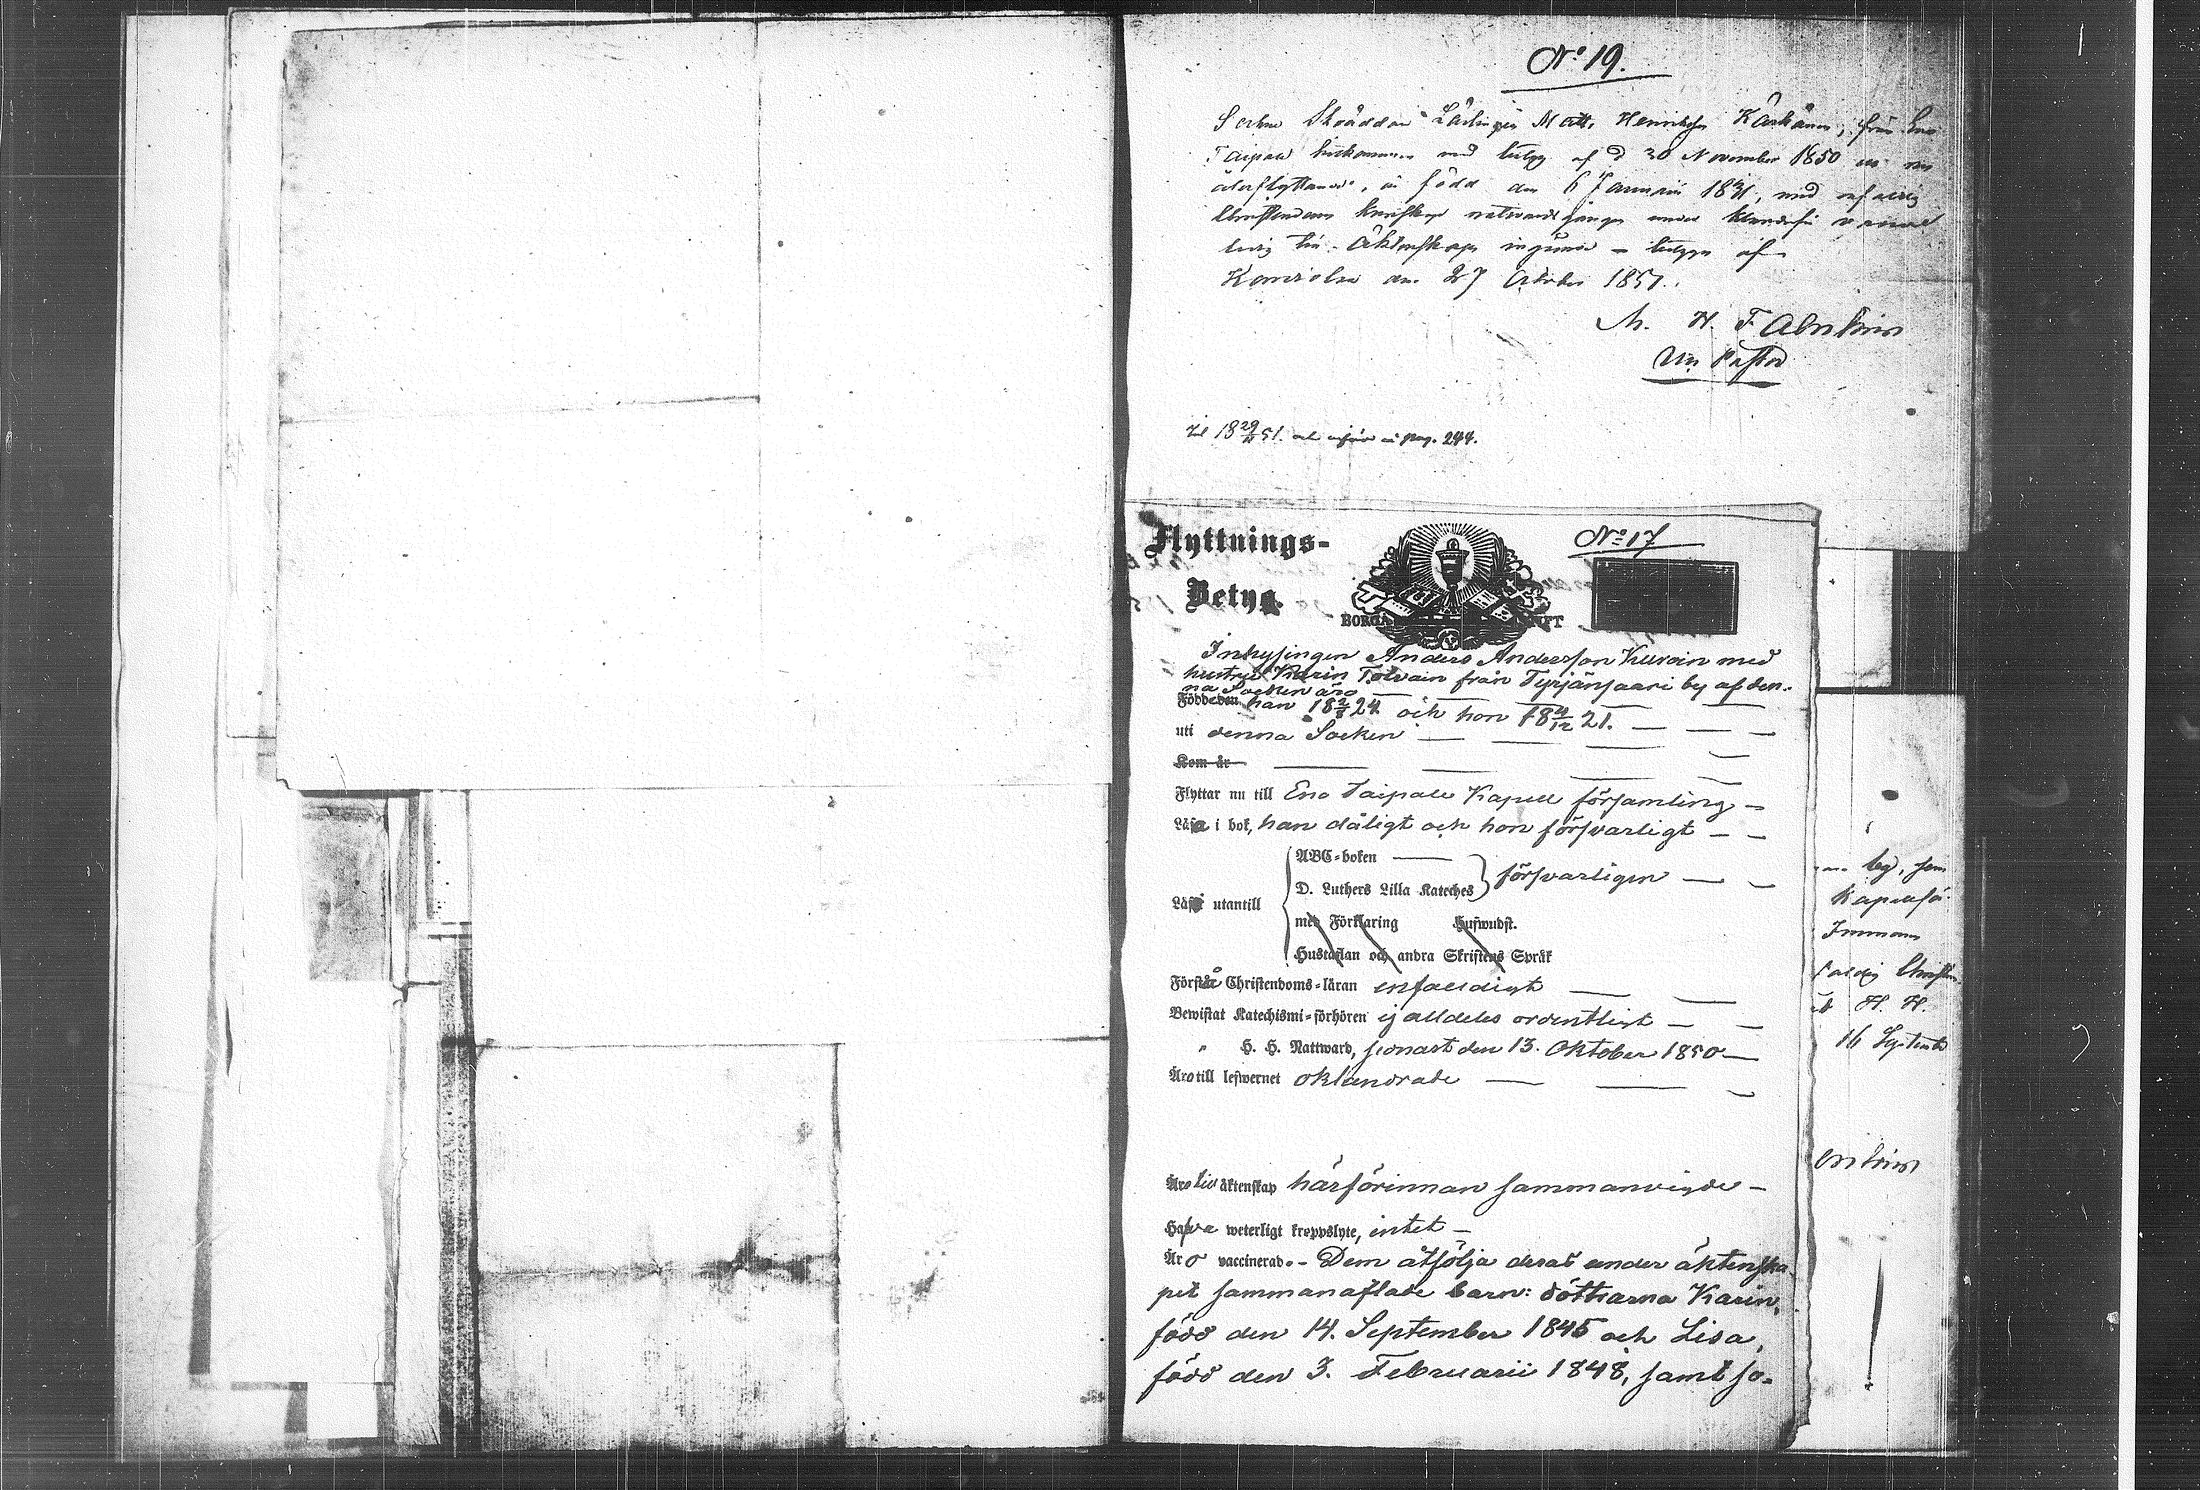 No 19.
Skräddar Lärlingen Matts Henriksson Kärkäinen, från Eno
Taipale med betyg af d 30 November 1850
återflyttande, är född den 6 Januarii 1831, med enfaldig
Christendoms kunskap under
ledig till Äktenskaps ingående betygar
Kontiolax den 27 October 1851.
M. H. Fabritius
Vice Pastor
18 29/11 51. pag. 244.
Flyttnings-
Betyg.
No 17
BORGÅ STIFT
Inhysingen Anders Andersson Kurvin med
hustru Karin Tolvain från Tyrjänsaari by af den-
na Socken äro
Född den han 18 2/8 24 och hon 18 4/12 21.
uti denna Socken
Kom år
Flyttar nu till Eno Taipale Kapell församling
Läsa i bok, han dåligt och hon försvarligt
Läsa utantill
ABC-boken
D. Luthers Lilla Kateches
försvarligen
med Förklaring Hufwudst.
Hustaflan och andra Skriftens Språk
Förstå Christendoms-läran enfaldigt
Bewistat Katechismi-förhören ej alldeles ordentligt
" H. H. Nattward, senast den 13. Oktober 1850
Äro till lefwernet oklandrade
Äro till äktenskap härförinnan sammanvigde
Hafva weterligt kroppslyte, intet
Äro vaccinerade - Dem åtfölja deras under äktenska-
pet sammanaflade barn: döttrarna Karin,
född den 14. September 1845 och Lisa,
född den 3. Februarii 1848, samt so-
by, som
Kapellfö-
Immonen
Christen-
H. H.
16 September